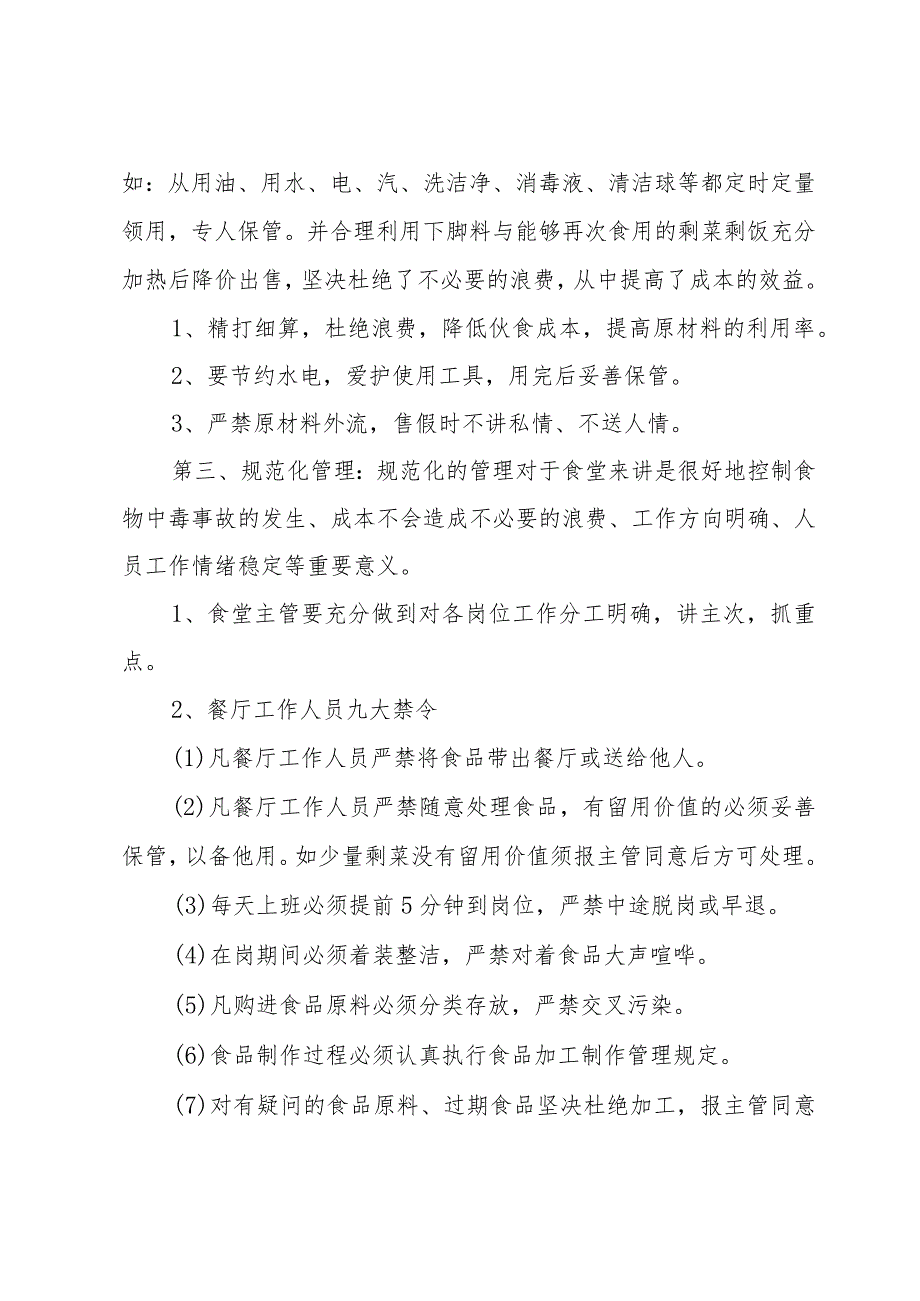 如：从用油、用水、电、汽、洗洁净、消毒液、清洁球等都定时定量
领用，专人保管。并合理利用下脚料与能够再次食用的剩菜剩饭充分
加热后降价出售，坚决杜绝了不必要的浪费，从中提高了成本的效益。
1、精打细算，杜绝浪费，降低伙食成本，提高原材料的利用率。
2、要节约水电，爱护使用工具，用完后妥善保管。
3、严禁原材料外流，售假时不讲私情、不送人情。
第三、规范化管理：规范化的管理对于食堂来讲是很好地控制食
物中毒事故的发生、成本不会造成不必要的浪费、工作方向明确、人
员工作情绪稳定等重要意义。
1、食堂主管要充分做到对各岗位工作分工明确，讲主次，抓重
点。
2、餐厅工作人员九大禁令
(1)凡餐厅工作人员严禁将食品带出餐厅或送给他人。
(2)凡餐厅工作人员严禁随意处理食品，有留用价值的必须妥善
保管，以备他用。如少量剩菜没有留用价值须报主管同意后方可处理。
(3)每天上班必须提前5分钟到岗位，严禁中途脱岗或早退。
(4)在岗期间必须着装整洁，严禁对着食品大声喧哗。
(5)凡购进食品原料必须分类存放，严禁交叉污染。
(6)食品制作过程必须认真执行食品加工制作管理规定。
(7)对有疑问的食品原料、过期食品坚决杜绝加工，报主管同意